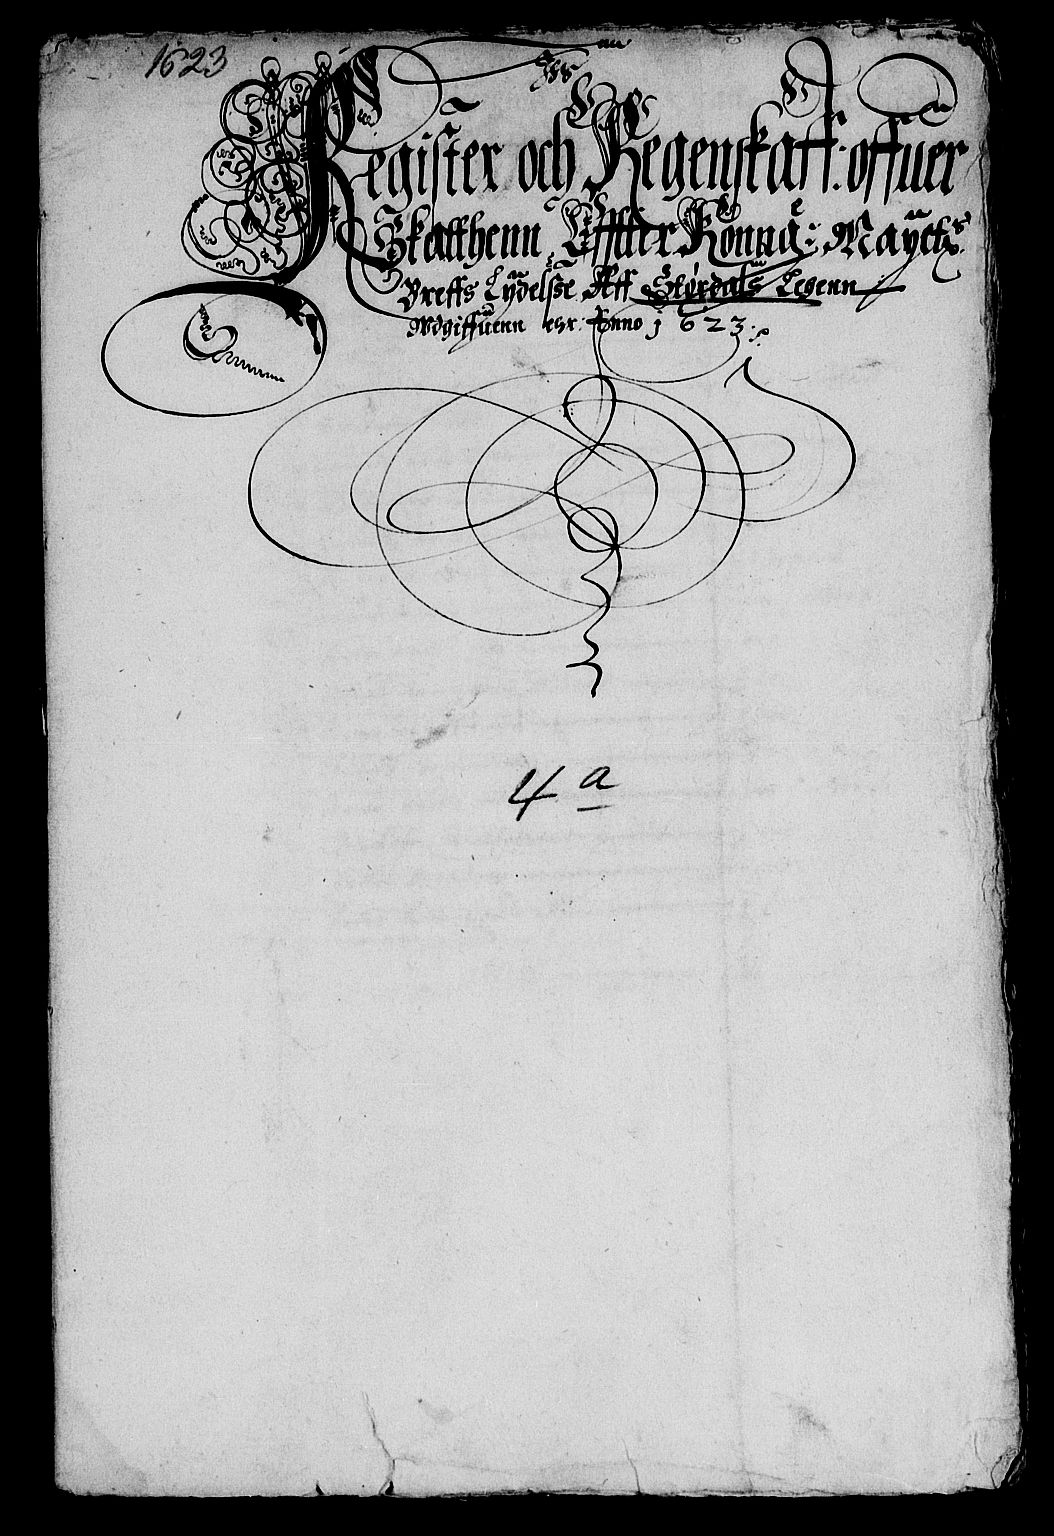 1623
Register och Regenskaff: offuer
Skatthenn Effther Konng: Mayetts
Breffs Lydelsse Aff Størdals Legenn
Wdgiffuenn thr: Anno 1623
4 a